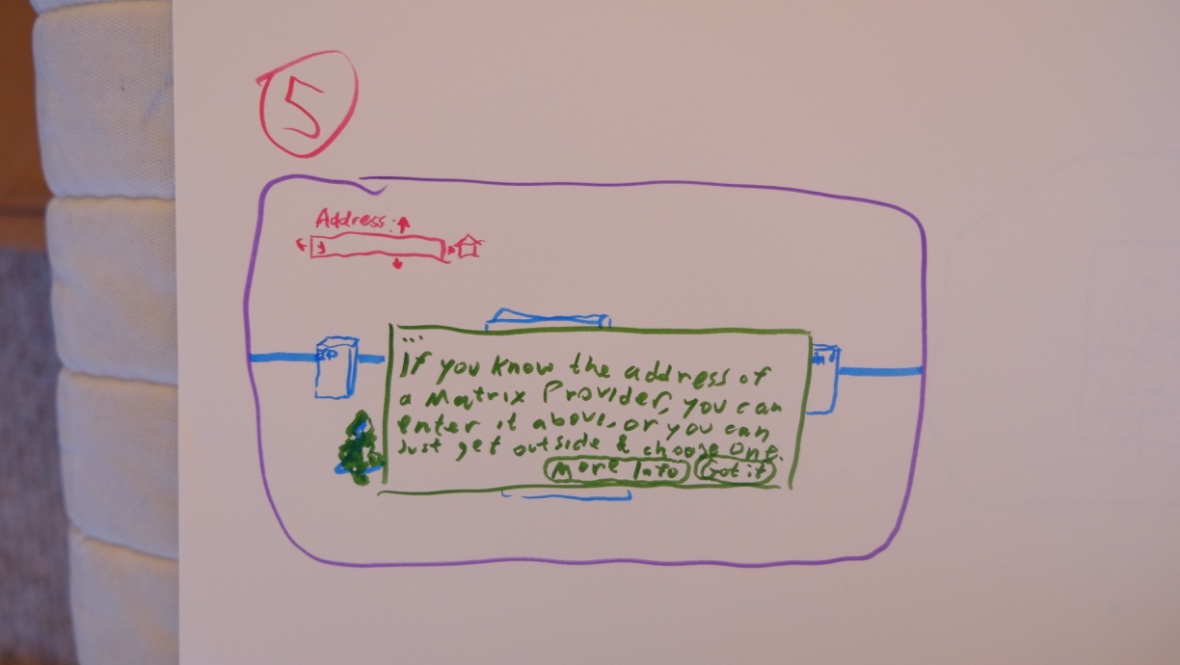 5
Address:
...
If you know the address of
a Matrix Provider, you can
enter it above, or you can
Just get outside & choose one.
More Info Got it